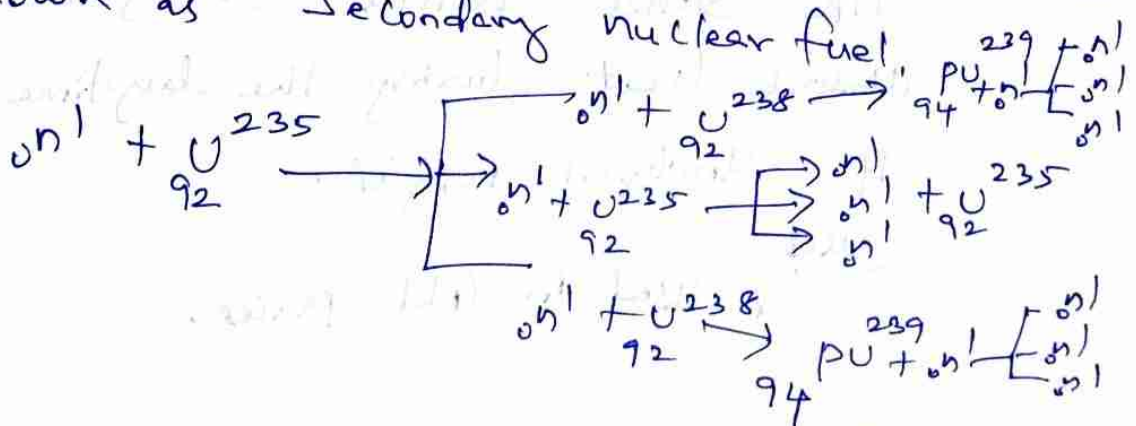 as Secondary nuclear fuel.
₀n¹ + ₉₂U²³⁵ → ₀n¹ + ₉₂U²³⁸ → ₉₄PU²³⁹ + ₀n¹ ₀n¹ ₀n¹ ₀n¹
₀n¹ + ₉₂U²³⁵ → ₀n¹ ₀n¹ ₀n¹ + ₉₂U²³⁵
₀n¹ + ₉₂U²³⁸ → ₉₄PU²³⁹ + ₀n¹ ₀n¹ ₀n¹ ₀n¹